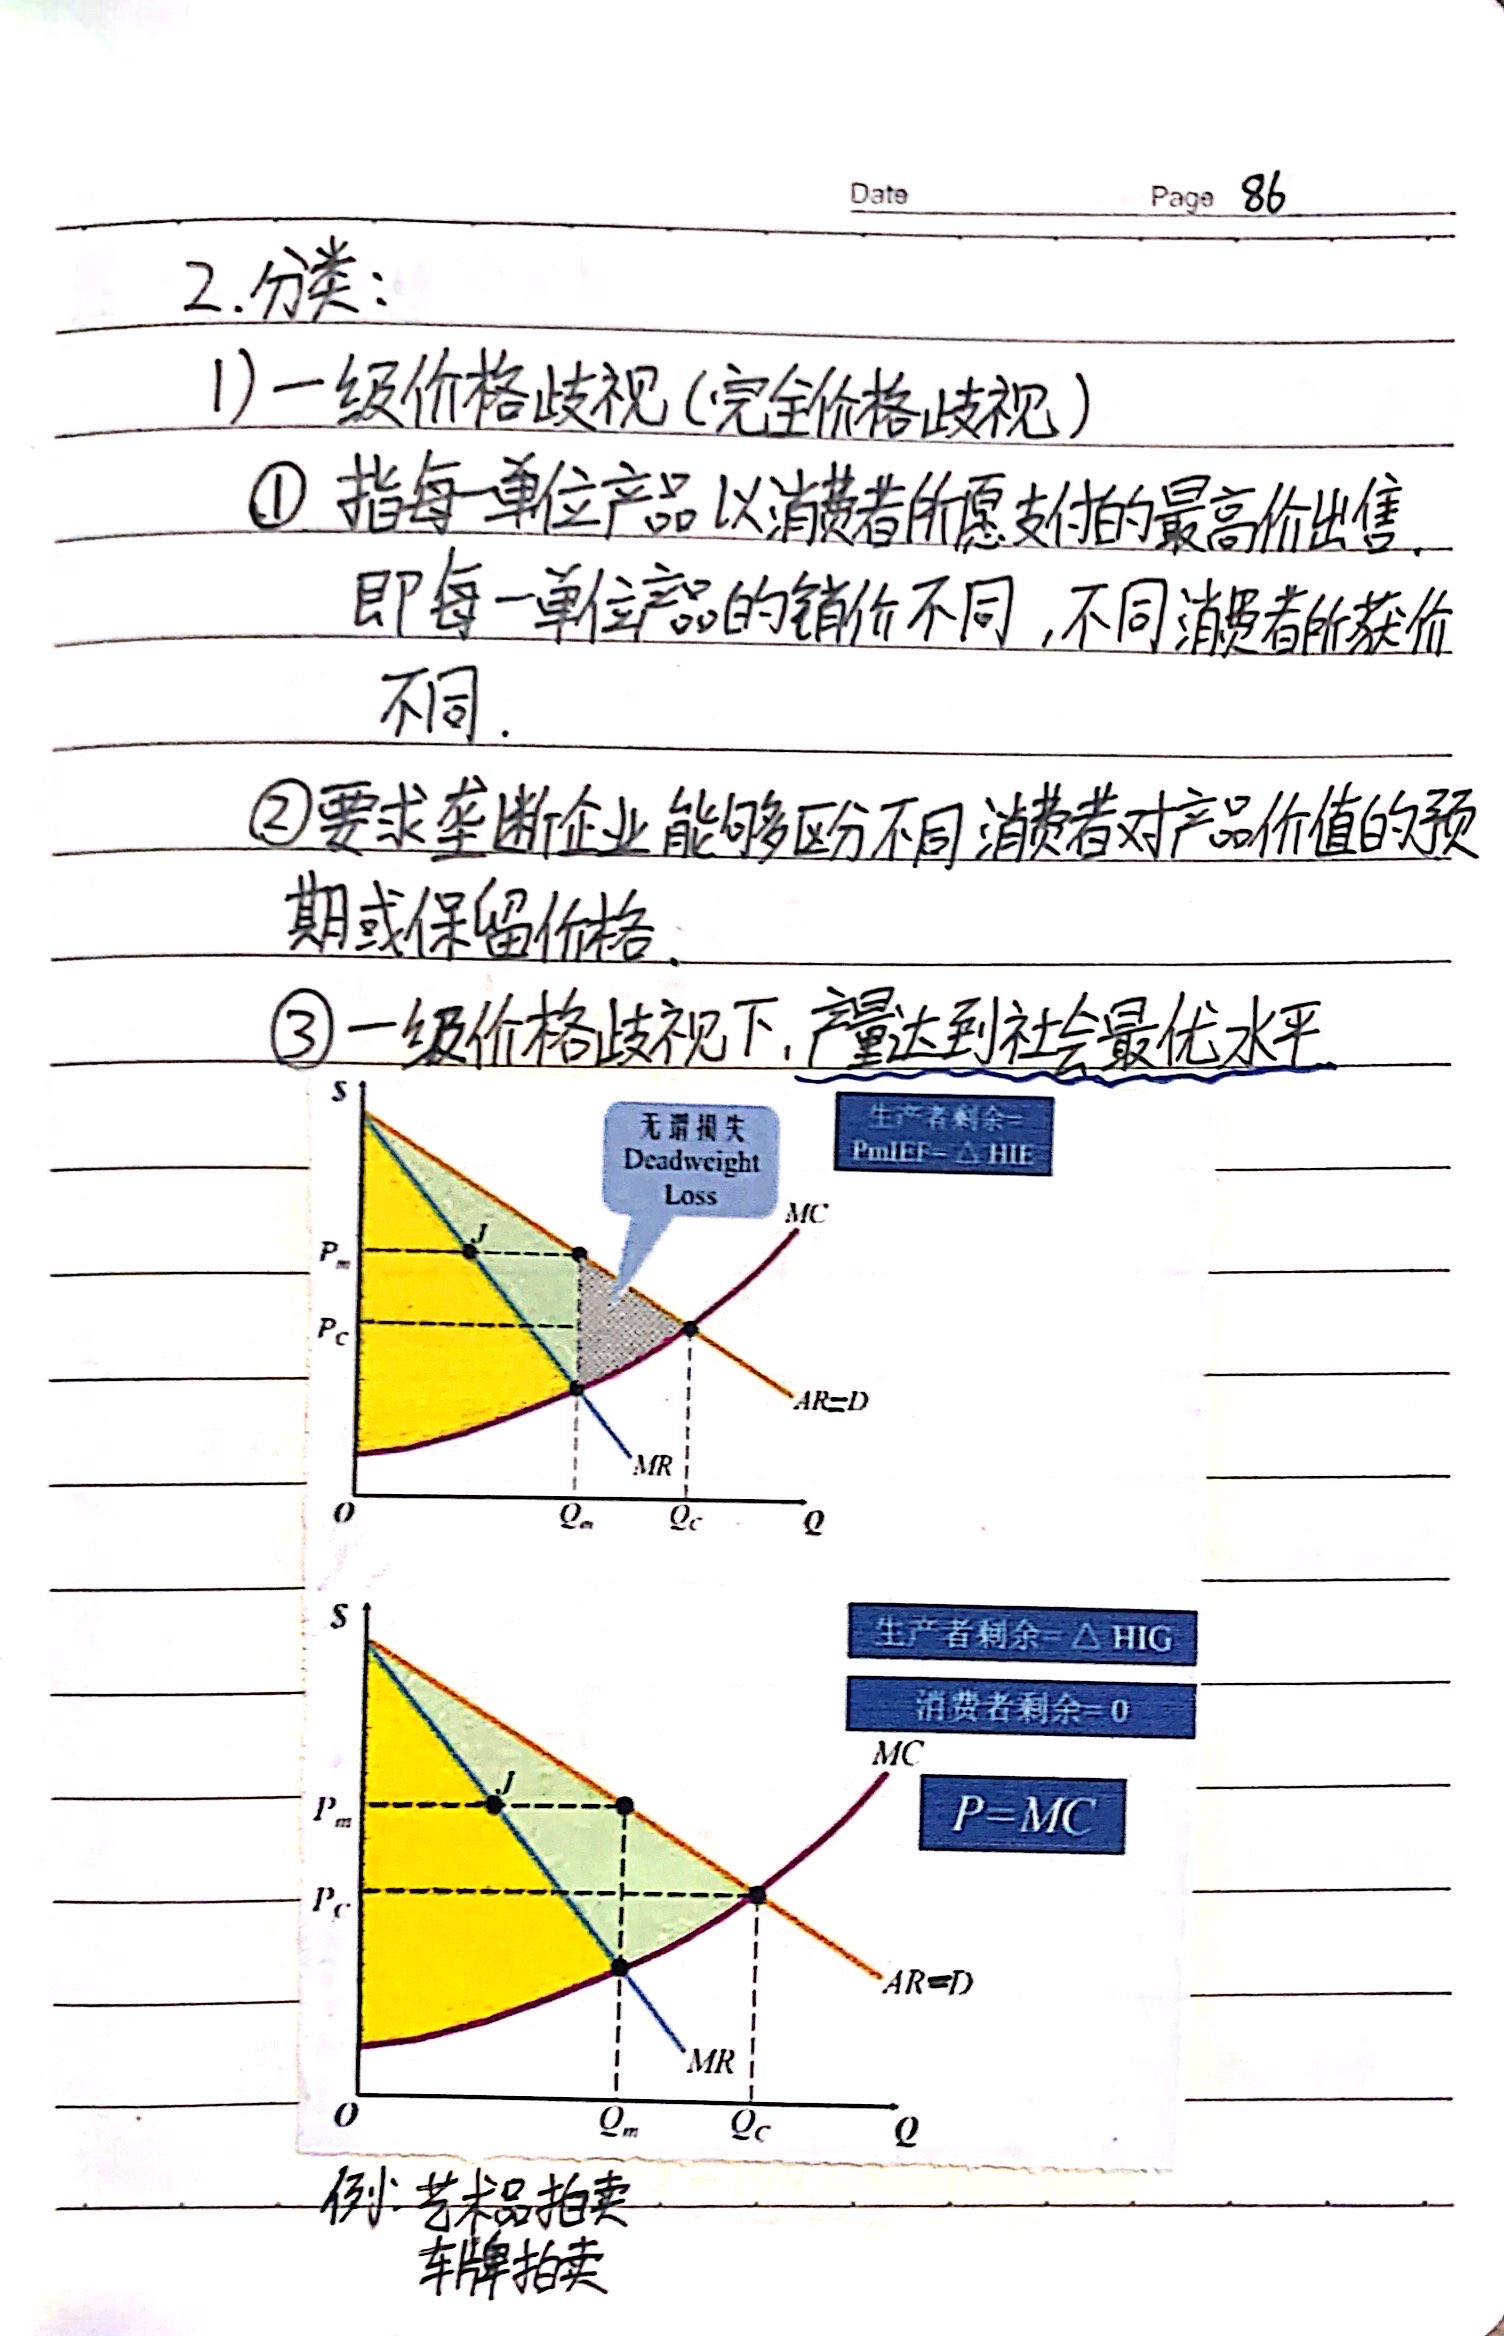 Date Page 86
2.分类:
1)一级价格歧视(完全价格歧视)
① 指每一单位产品以消费者所愿支付的最高价出售.
即每一单位产品的销价不同,不同消费者所获价
不同.
②要求垄断企业能够区分不同消费者对产品价值的预
期或保留价格.
③一级价格歧视下,产量达到社会最优水平.
S
无谓损失
Deadweight
Loss
生产者剩余=
PmIEF-△HIE
MC
J
Pm
PC
AR=D
MR
O Qm QC Q
S
生产者剩余=△HIG
消费者剩余=0
MC
P=MC
J
Pm
PC
AR=D
MR
O Qm QC Q
例:艺术品拍卖
车牌拍卖